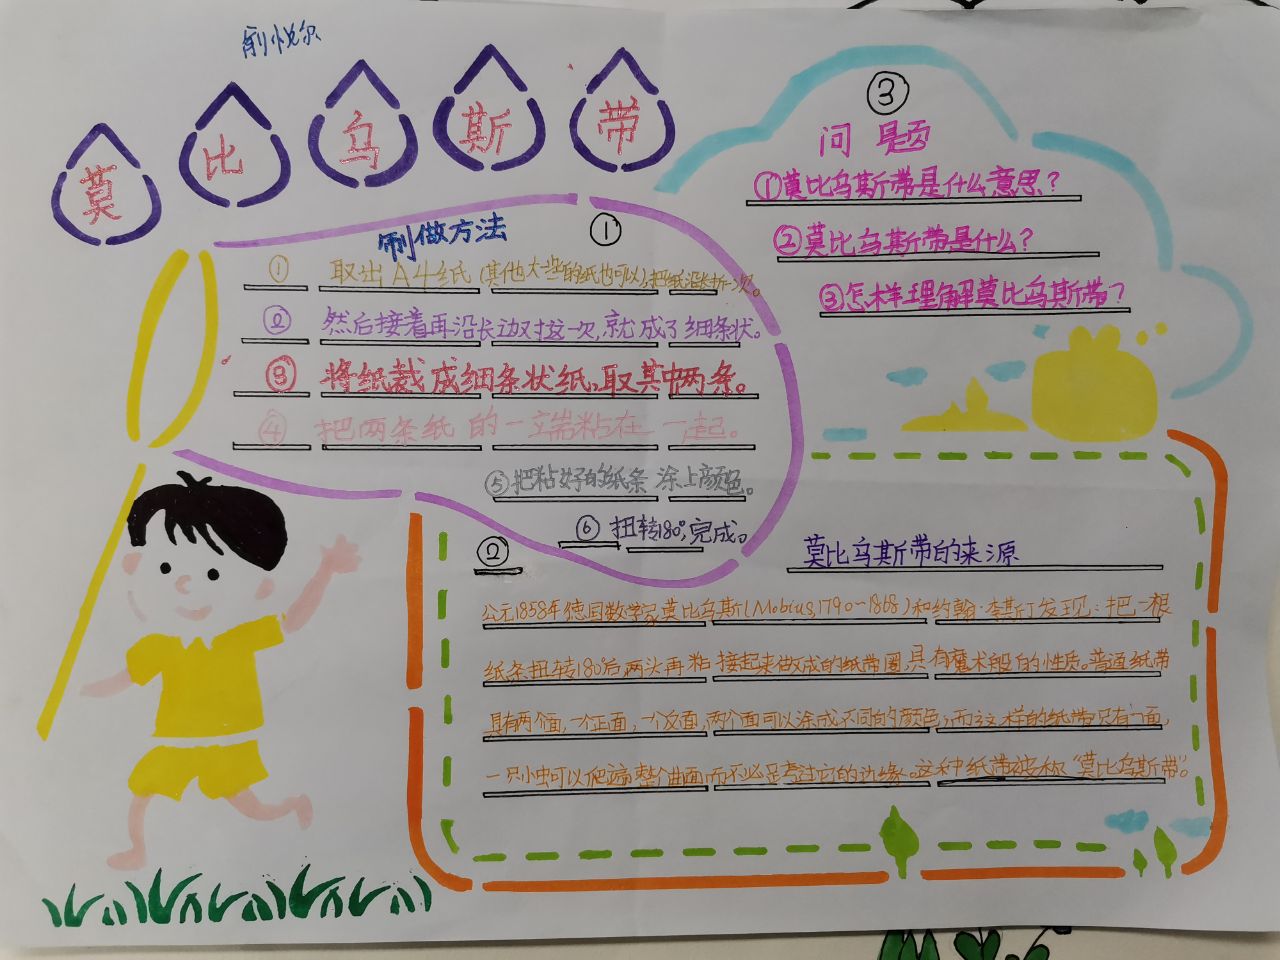 莫比乌斯带
制做方法
①
① 取出A4纸(其他大一些的纸也可以),把纸沿长折一次。
② 然后接着再沿长边对折一次,就成了细条状。
③ 将纸裁成细条状纸,取其中两条。
④ 把两条纸的一端粘在一起。
⑤把粘好的纸条涂上颜色。
⑥ 扭转180°,完成。
②
莫比乌斯带的来源
公元1858年德国数学家莫比乌斯(Mobius,1790~1868)和约翰·李斯丁发现:把一根
纸条扭转180°后两头再粘接起来做成的纸带圈,具有魔术般的性质。普通纸带
具有两个面,一个正面,一个反面,两个面可以涂成不同的颜色;而这样的纸带只有一面,
一只小虫可以爬遍整个曲面而不必跨过它的边缘。这种纸带被称“莫比乌斯带”。
③
问题
①莫比乌斯带是什么意思?
②莫比乌斯带是什么?
③怎样理解莫比乌斯带?